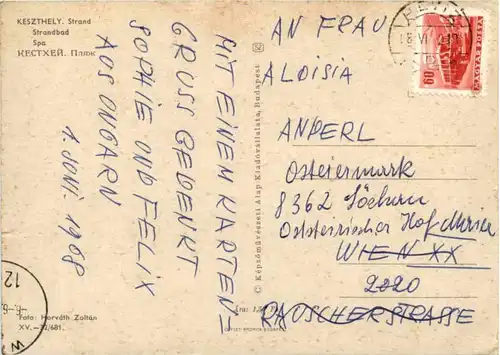 KESZTHELY. Strand
Strandbad
Spa
КЕСТХЕЙ. Пляж
MIT EINEM KARTEN–
GRUSS GEDENKT
SOPHIE UND FELIX
AUS UNGARN
1. JUNI. 1968
Foto: Horváth Zoltán
XV.–10/681.
© Képzőművészeti Alap Kiadóvállalata, Budapest
AN FRAU
ALOISIA
ANPERL
Osteiermark
8362 Söchau
Oststeirischer Hof Maria
WIEN XX
2020
RAUSCHERSTRASSE
MAGYAR POSTA
60
12
W